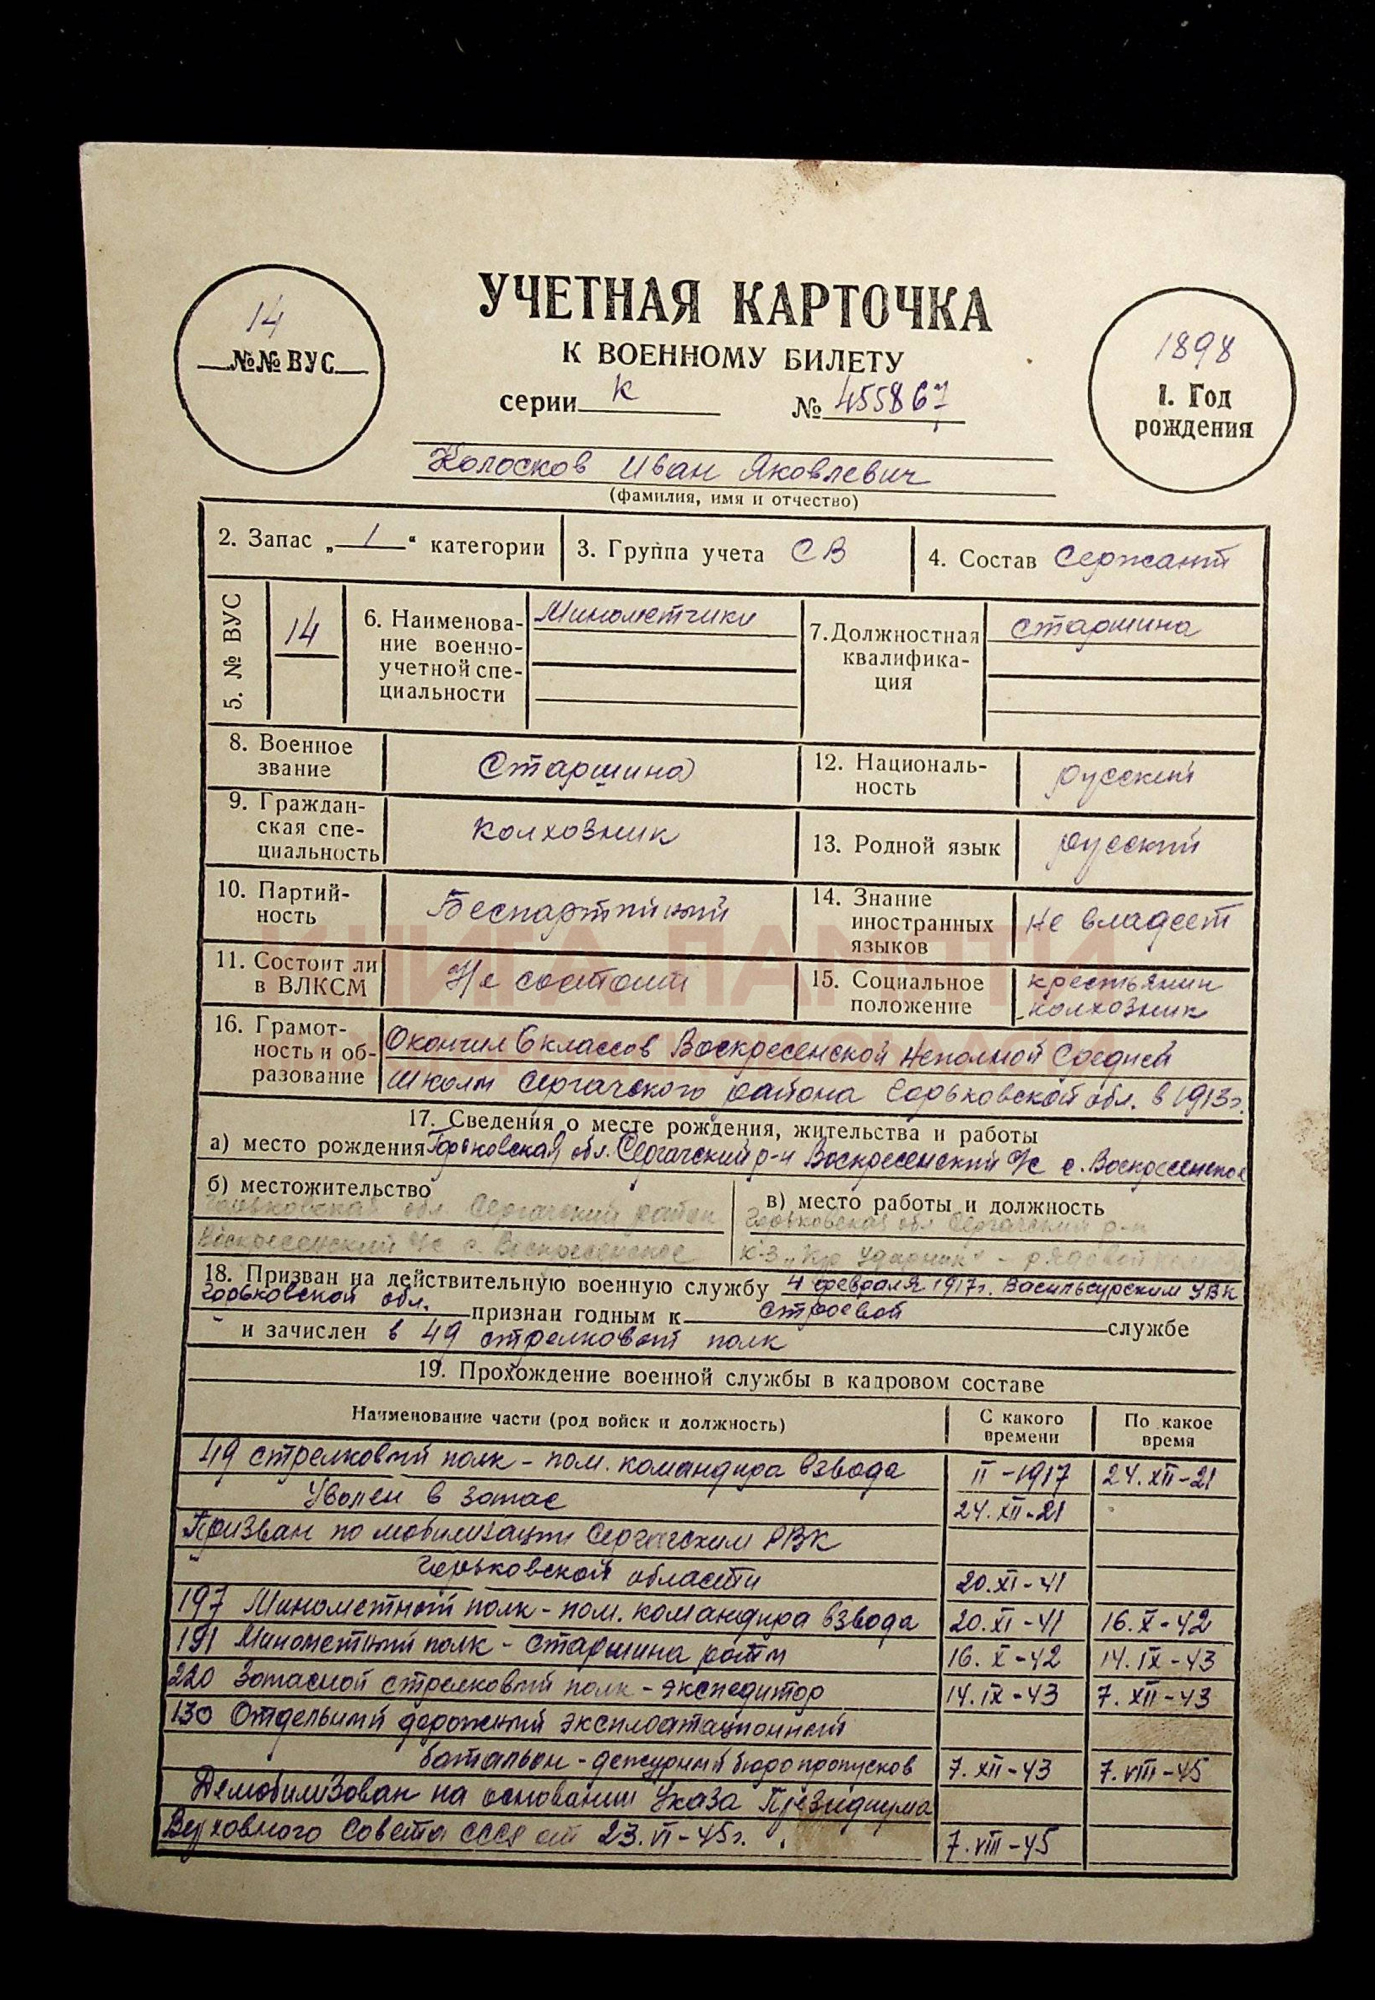 УЧЕТНАЯ КАРТОЧКА
К ВОЕННОМУ БИЛЕТУ
серии К № 455867
14
№№ ВУС
1898
1. Год
рождения
Колосков Иван Яковлевич
(фамилия, имя и отчество)
2. Запас „1“ категории
3. Группа учета СВ
4. Состав Сержант
5. № ВУС
14
6. Наименова-
ние военно-
учетной спе-
циальности
Минометчики
7. Должностная
квалифика-
ция
старшина
8. Военное
звание
Старшина
12. Националь-
ность
русский
9. Граждан-
ская спе-
циальность
колхозник
13. Родной язык
русский
10. Партий-
ность
Беспартийный
14. Знание
иностранных
языков
Не владеет
11. Состоит ли
в ВЛКСМ
Не состоит
15. Социальное
положение
крестьянин
колхозник
КНИГА ПАМЯТИ
НИЖЕГОРОДСКОЙ ОБЛАСТИ
16. Грамот-
ность и об-
разование
Окончил 6 классов Воскресенской Неполной Средней
школы Сергачского района Горьковской обл. в 1913г.
17. Сведения о месте рождения, жительства и работы
а) место рождения Горьковская обл. Сергачский р-н Воскресенский с/с с. Воскресенское
б) местожительство
Горьковская обл. Сергачский район
Воскресенский с/с с. Воскресенское
в) место работы и должность
Горьковская обл Сергачский р-н
к-з „Кр Ударник“ - рядовой
18. Призван на действительную военную службу 4 февраля 1917г. Васильсурским УВК
Горьковской обл. признан годным к строевой службе
и зачислен в 49 стрелковый полк
19. Прохождение военной службы в кадровом составе
Наименование части (род войск и должность)
С какого
времени
По какое
время
49 стрелковый полк - пом. командира взвода II-1917 24.XII-21
Уволен в запас 24.XII-21
Призван по мобилизации Сергачским РВК
Горьковской области 20.XI-41
197 Минометный полк - пом. командира взвода 20.XI-41 16.X-42
191 Минометный полк - старшина роты 16.X-42 14.IX-43
220 Запасной стрелковый полк - экспедитор 14.IX-43 7.XII-43
130 Отдельный дорожный эксплоатационный
батальон - дежурный бюро пропусков 7.XII-43 7.VIII-45
Демобилизован на основании Указа Президиума
Верховного Совета СССР от 23.VI-45г. 7.VIII-45